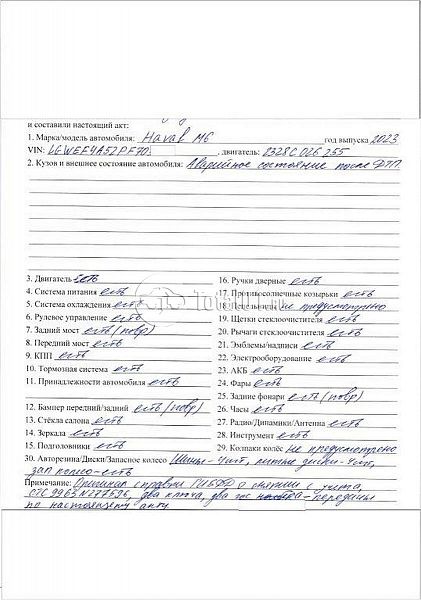 и составили настоящий акт:
1. Марка/модель автомобиля: Haval M6 год выпуска 2023
VIN: LGWEE4A52PF70 , двигатель:
2. Кузов и внешнее состояние автомобиля: Аварийное состояние после ДТП.
3. Двигатель есть
4. Система питания есть
5. Система охлаждения есть
6. Рулевое управление есть
7. Задний мост есть (повр)
8. Передний мост есть
9. КПП есть
10. Тормозная система есть
11. Принадлежности автомобиля есть
12. Бампер передний/задний есть (повр)
13. Стёкла салона есть
14. Зеркала есть
15. Подголовники есть
16. Ручки дверные есть
17. Противосолнечные козырьки есть
18. не предусмотрено
19. Щетки стеклоочистителя есть
20. Рычаги стеклоочистителя есть
21. Эмблемы/надписи есть
22. Электрооборудование есть
23. АКБ есть
24. Фары есть
25. Задние фонари есть (повр)
26. Часы есть
27. Радио/Динамики/Антенна есть
28. Инструмент есть
29. Колпаки колёс не предусмотрено
30. Авторезина/Диски/Запасное колесо Шины - 4шт, литые диски - 4шт,
зап колесо - есть
Примечание: Оригинал справки ГИБДД о снятии с учета,
СТС два ключа, два гос номера - переданы
по настоящему акту.